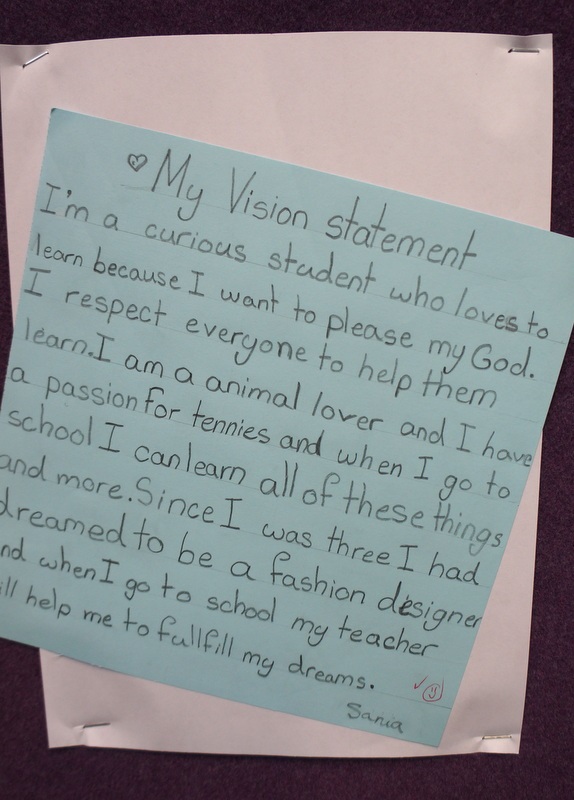 My Vision statement
I'm a curious student who loves to
learn because I want to please my God.
I respect everyone to help them
learn. I am a animal lover and I have
a passion for tennies and when I go to
school I can learn all of these things
and more. Since I was three I had
dreamed to be a fashion designer
nd when I go to school my teacher
ill help me to fullfill my dreams.
Sania